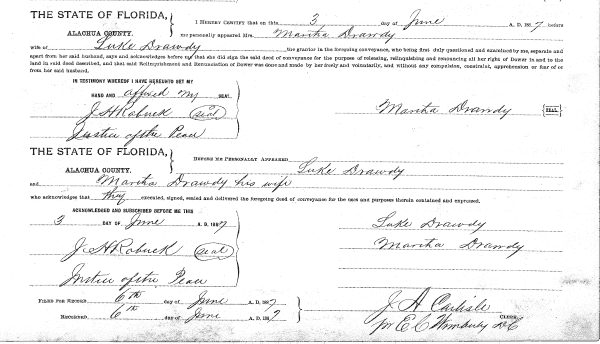 THE STATE OF FLORIDA,
ALACHUA COUNTY.
I HEREBY CERTIFY that on this 3 day of June A. D. 1887 before
me personally appeared Mrs. Martha Drawdy
wife of Luke Drawdy the grantor in the foregoing conveyance, who being first duly questioned and examined by me, separate and
apart from her said husband, says and acknowledges before me that she did sign the said deed of conveyance for the purpose of releasing, relinquishing and renouncing all her rights of Dower in and to the
land in said deed described, and that said Relinquishment and Renunciation of Dower was done and made by her freely and voluntarily, and without any compulsion, constraint, apprehension or fear of or
from her said husband,
IN TESTIMONY WHEREOF I HAVE HEREUNTO SET MY
HAND AND affixed my SEAL.
J H Robuck seal
Justice of the Peace
Martha Drawdy SEAL.
THE STATE OF FLORIDA,
ALACHUA COUNTY.
BEFORE ME PERSONALLY APPEARED Luke Drawdy
and Martha Drawdy his wife
who acknowledges that they executed, signed, sealed and delivered the foregoing deed of conveyance for the uses and purposes therein contained and expressed.
ACKNOWLEDGED AND SUBSCRIBED BEFORE ME THIS
3 DAY OF June A. D. 1887
J H Robuck seal
Justice of the Peace
Luke Drawdy
Martha Drawdy
FILED FOR RECORD 6th day of June A. D. 1887
RECORDED 6th day of June A. D. 1887
J. A. Carlisle
CLERK.
pr E C Wimberly DC